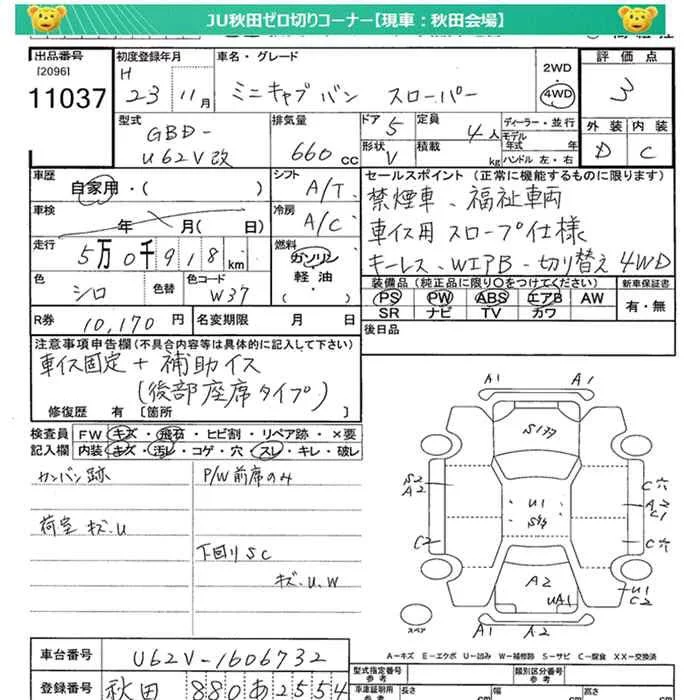 JU秋田ゼロ切りコーナー【現車：秋田会場】
出品番号
[2096]
11037
初度登録年月
H 23年 11月
車名・グレード
ミニキャブバン スローパー
2WD
・
4WD
評価点
3
外装 内装
D C
型式
GBD-
U62V改
排気量
660 cc
ドア 5
形状 V
定員 4人
積載 kg
ディーラー・並行
モデル年式 年式
ハンドル 左・右
車歴
自家用・( )
シフト
A/T
車検
年 月(日)
冷房
A/C
走行
5万0千918km
燃料
ガソリン
軽油
・( )
色
シロ
色替
色コード
W37
R券 10,170円
名変期限 月 日
セールスポイント(正常に機能するものに限ります)
禁煙車、福祉車両
車イス用 スロープ仕様
キーレス、WIPB、切り替え4WD
装備品(純正品に限り○をつけてください)
PS PW ABS エアB AW
SR ナビ TV カワ
新車保証書
有・無
後日品
注意事項申告欄(不具合内容等は具体的に記入して下さい)
車イス固定+補助イス
(後部座席タイプ)
修復歴 有 〔箇所
検査員記入欄
FW キズ・飛石・ヒビ割・リペア跡・×要
内装 キズ・汚レ・コゲ・穴・スレ・キレ・破レ
カンバン跡
P/W前席のみ
荷室 キズ.U
下回りSC
キズ、U、W
A1 A1
S1
S2
A2
U1
C穴
A2
C1
C2
C穴
A2
UA1
U1
C2
スペア
A1 A2
A=キズ E=エクボ U=凹み W=補修跡 S=サビ C=腐食 XX=交換済
車台番号
U62V-1606732
登録番号
秋田 880あ2554
型式指定番号
参考
類別区分番号
参考
車庫証明用
参考
長さ
cm
幅
cm
高さ
cm